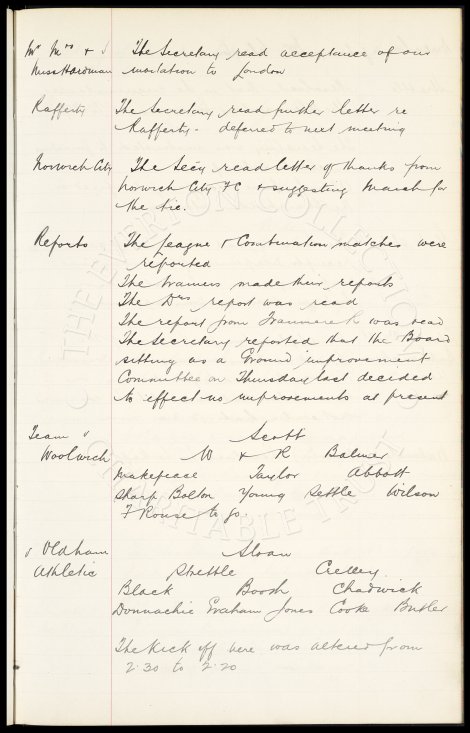 Mr Mrs & J The Secretary read acceptance of our
Miss Hardman invitation to London
Rafferty The Secretary read further letter re
Rafferty. deferred to next meeting
Norwich City The Secy read letter of thanks from
Norwich City FC & suggesting March for
the tie.
Reports The League & Combination matches were
reported
The trainers made their reports
The Drs report was read
The report from Tranmere R was read
The Secretary reported that the Board
sitting as a Ground improvement
Committee on Thursday last decided
to effect no improvements at present
Team v Scott
Woolwich W & R Balmer
Makepeace Taylor Abbott
Sharp Bolton Young Settle Wilson
F Rouse to go.
v Oldham Sloan
Athletic Strettle Crelley
Black Booth Chadwick
Donnachie Graham Jones Cooke Butler
The Kick off here was altered from
2.30 to 2.20
THE EVERTON COLLECTION
CHARITABLE TRUST